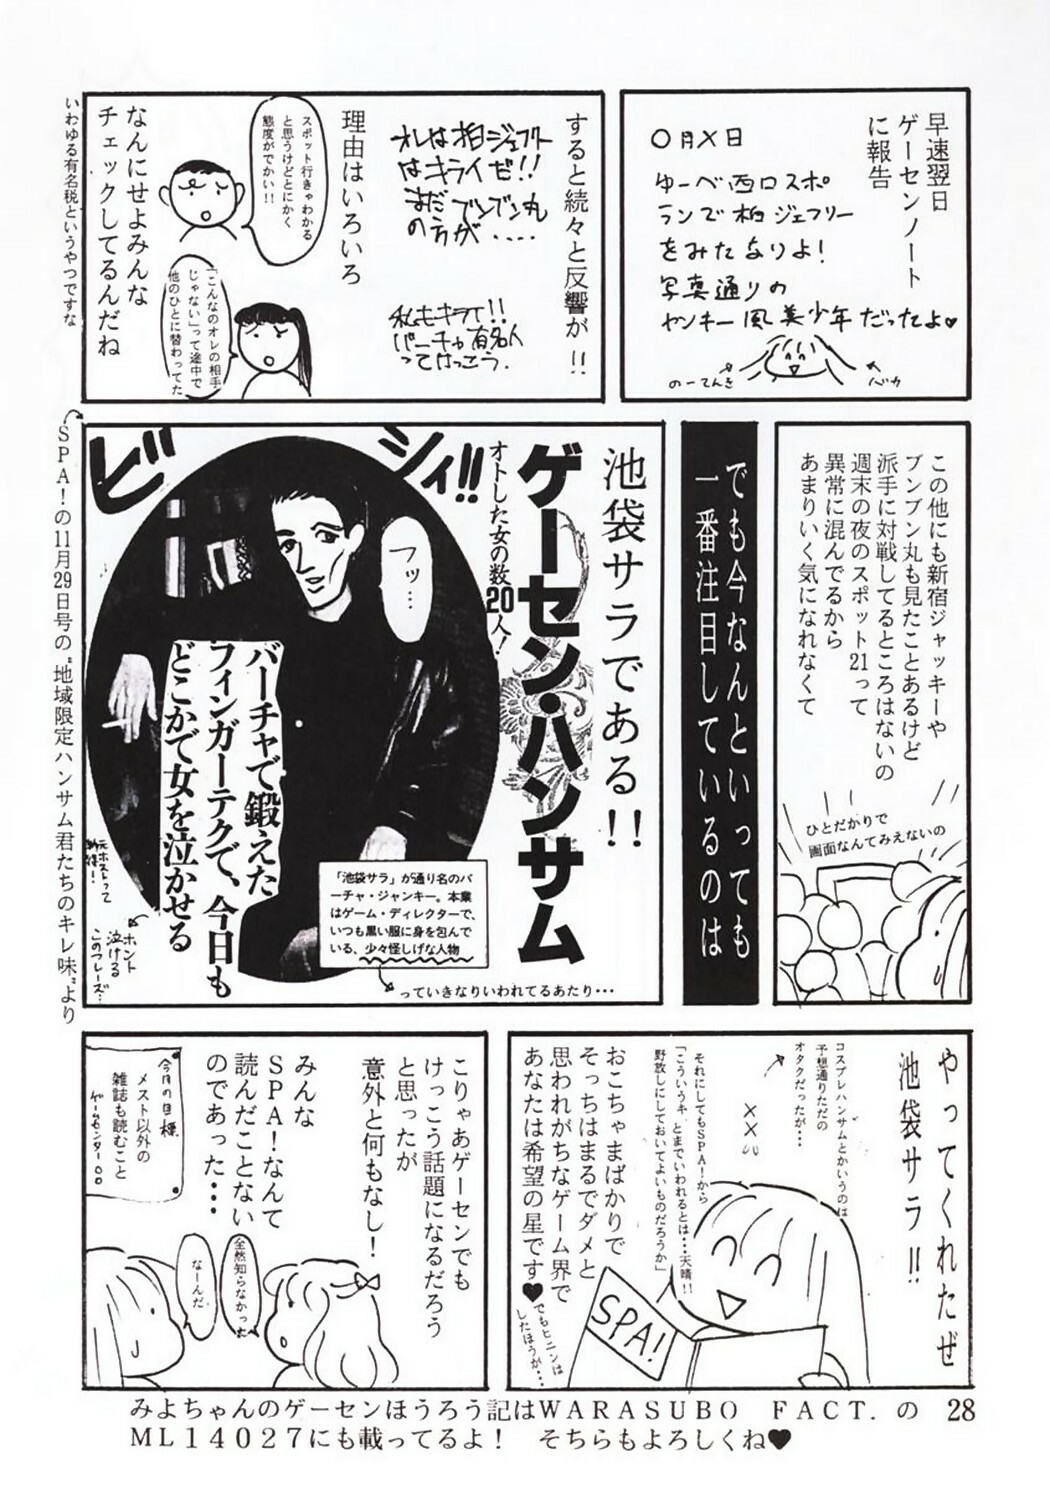 早速翌日
ゲーセンノート
に報告
〇月X日
ゆーべ西口スポ
ランで柏ジェフリー
をみたなりよ!
写真通りの
ヤンキー風美少年だったよ♥
のーてんき
バカ
すると続々と反響が!!
オレは柏ジェフリー
はキライだ!!
まだブンブン丸
の方が....
私もキライ!!
バーチャ有名人
ってはっこう.
理由はいろいろ
スポット行きゃわかる
と思うけどとにかく
態度がでかい!!
「こんなのオレの相手
じゃない」って途中で
他のひとに替わってた
なんにせよみんな
チェックしてるんだね
いわゆる有名税というやつですな
この他にも新宿ジャッキーや
ブンブン丸も見たことあるけど
派手に対戦してるところはないの
週末の夜のスポット21って
異常に混んでるから
あまりいく気になれなくて
ひとだかりで
画面なんてみえないの
でも今なんといっても
一番注目しているのは
池袋サラである!!
ゲーセン・ハンサム
オトした女の数20人!
ビシィ!!
フッ…
バーチャで鍛えた
フィンガーテクで、今日も
どこかで女を泣かせる
「池袋サラ」が通り名のバ
ーチャ・ジャンキー。本業
はゲーム・ディレクターで、
いつも黒い服に身を包んで
いる、少々怪しげな人物
っていきなりいわれてるあたり・・・
ホント
泣ける
このフレーズ…
元ホストって
SPA!の11月29日号の"地域限定ハンサム君たちのキレ味"より
やってくれたぜ
池袋サラ!!
コスプレハンサムとかいうのは
予想通りただの
オタクだったが…
それにしてもSPA!から
「こういうキ とまでいわれるとは…天晴!!
野放しにしておいてよいものだろうか」
おこちゃまばかりで
そっちはまるでダメと
思われがちなゲーム界で
あなたは希望の星です♥
でもヒニンは
したほうが…
SPA!
こりゃあゲーセンでも
けっこう話題になるだろう
と思ったが
意外と何もなし!
みんな
SPA!なんて
読んだことない
のであった・・・
今月の目標
メスト以外の
雑誌も読むこと
ゲームセンター〇〇
全然知らなかった
なーんだ
みよちゃんのゲーセンほうろう記はWARASUBO FACT.の
ML14027にも載ってるよ! そちらもよろしくね♥
28